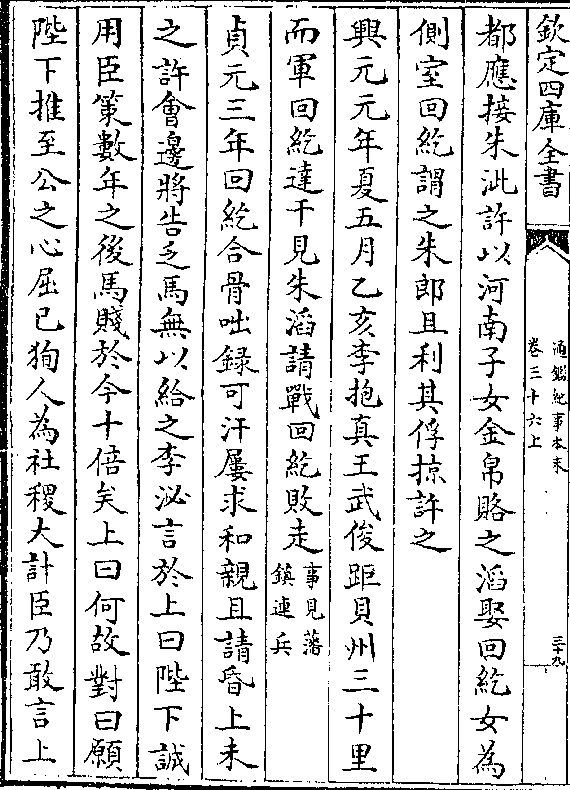 欽定四庫全書
通鑑紀事本末
卷三十六上
三十九
都應接朱泚許以河南子女金帛賂之滔娶回紇女為
側室回紇謂之朱郎且利其俘掠許之
興元元年夏五月乙亥李抱真王武俊距貝州三十里
而軍回紇達干見朱滔請戰回紇敗走事見藩鎮連兵
貞元三年回紇合骨咄録可汗屢求和親且請昏上未
之許會邊將告乏馬無以給之李泌言於上曰陛下誠
用臣策數年之後馬賤於今十倍矣上曰何故對曰願
陛下推至公之心屈已狥人為社稷大計臣乃敢言上